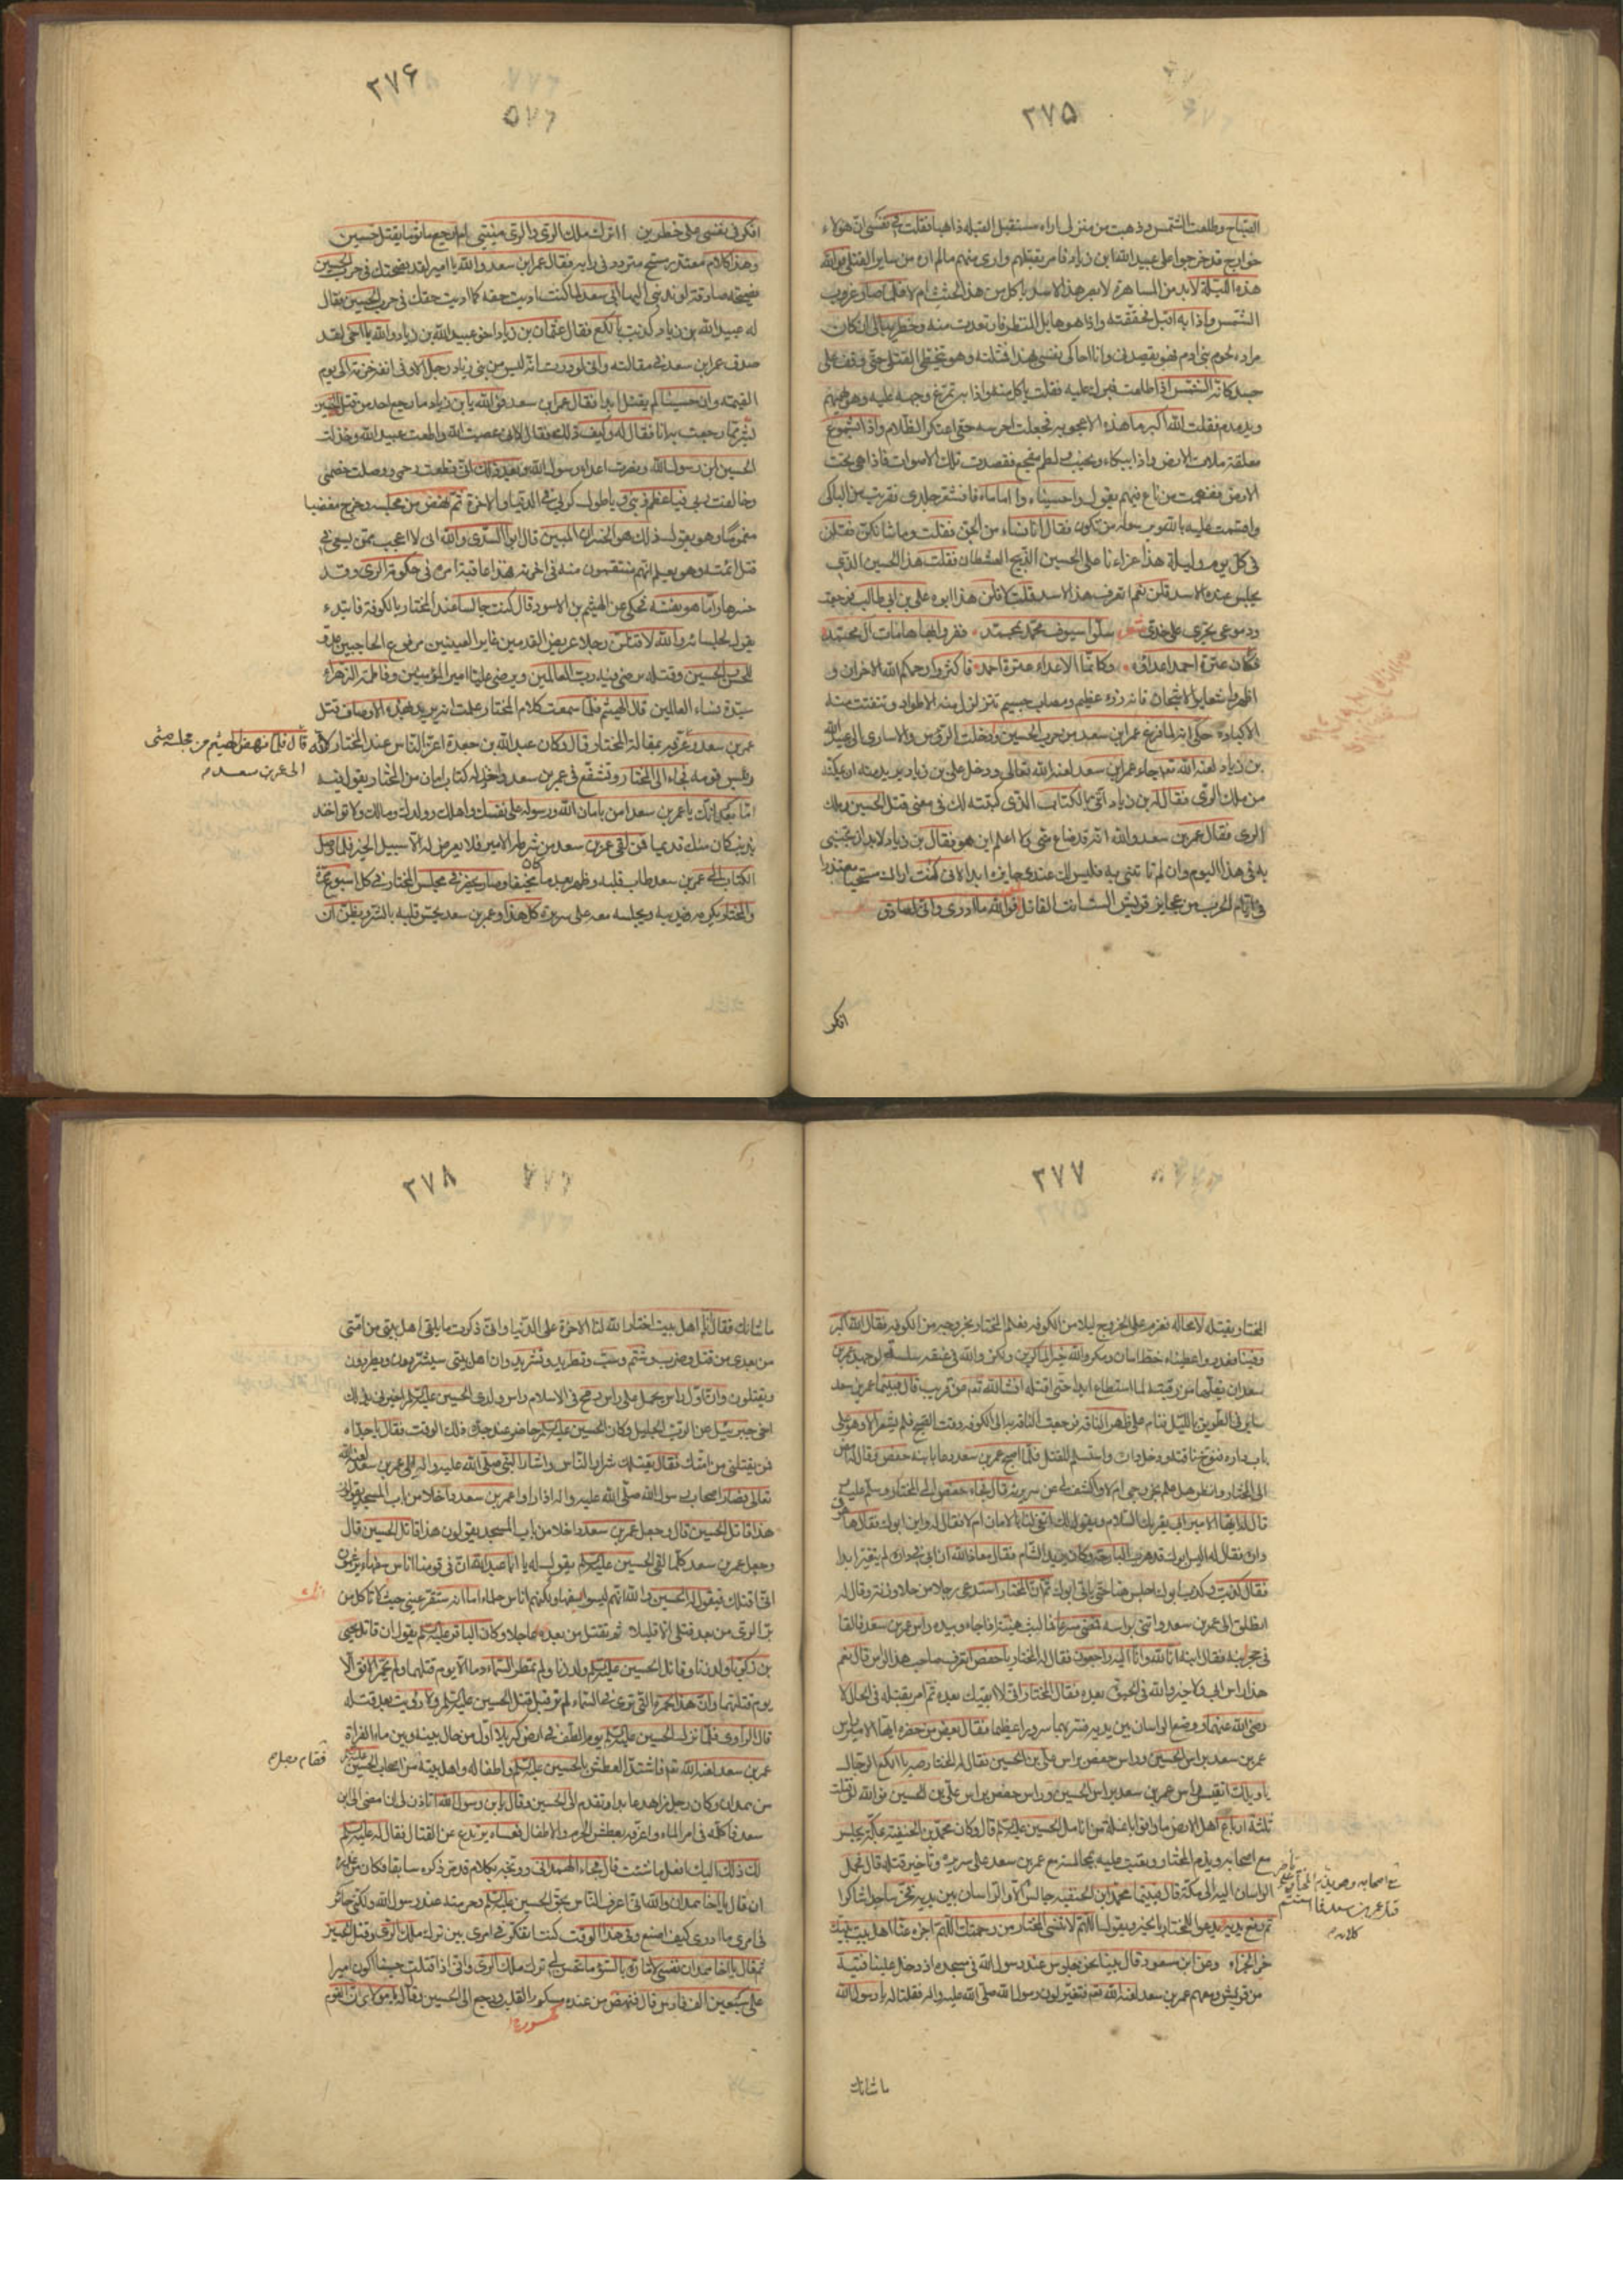 ٢٧۵
الصباح وطلعت الشمس وذهبت من منزلى اراه مستقبل القبلة ذاهبا فقلت فى نفسى ان هؤلاء
خوارج قد خرجوا على عبيد الله ابن زياد فامر بقتلهم وارى منهم مالم اره من ساير القتلى فوالله
هذه الليلة لابد من المساهرة لابصر هذا الاسد ياكل من هذه الجثث ام لا فلما صار غروب
الشمس واذا به اقبل فحققته واذا هو هايل المنظر فارتعدت منه وخطر ببالى ان كان
مراده لحوم بنى ادم فهو يقصدنى وانا احاكى نفسى بهذا فمثلته وهو يتخطى القتلى حتى وقف على
جسد كانه الشمس اذا طلعت فبرك عليه فقلت ياكل منه واذا به يمرغ وجهه عليه وهو يهمهم
ويدمدم فقلت الله اكبر ما هذه الا اعجوبه فجعلت احرسه حتى اعتكر الظلام واذا بشموع
معلقة ملأت الارض واذا ببكاء ونحيب ولطم مفجع فقصدت تلك الاصوات فاذا هى تحت
الارض ففهمت من ناع فيهم يقول واحسيناه وا اماماه فاقشعر جلدى فقربت من الباكى
واقسمت عليه بالله وبرسوله من تكون فقال انا نساء من الجن فقلت وما شانكن فقلن
فى كل يوم وليلة هذا عزاءنا على الحسين الذبيح العطشان فقلت هذا الحسين الذى
يجلس عنده الاسد قلن نعم اتعرف هذا الاسد قلت لا قلن هذا ابوه على بن ابى طالب فرجعت
ودموعى تجرى على خدى شعر سلوا سيوف محمد بمحمد ففروا بها هامات ال محمد
فكان عترة احمد اعداؤه وكانما الاعداء عترة احمد فاكثروا رحمكم الله الاحزان و
اظهروا شعاير الاشجان فانه رزء عظيم ومصاب جسيم تتزلزل منه الاطواد وتتفتت منه
الاكباد حكى انه لما فرغ عمر ابن سعد من حرب الحسين وادخلت الرؤس والاسارى الى عبيد الله
بن زياد لعنه الله تعه جاء عمر ابن سعد لعنه الله تعالى ودخل على بن زياد يريد منه ان يمكنه
من ملك الرى فقال له بن زياد ائتنى بالكتاب الذى كتبته لك فى معنى قتل الحسين وملك
الرى فقال عمر بن سعد والله انه قد ضاع منى ولا اعلم اين هو فقال بن زياد لابد ان تجيئنى
به فى هذا اليوم وان لم تاتنى به فليس لك عندى جايزة ابدا لانى كنت اراك مستحيا معتذرا
فى ايام الحرب من عجايز قريش الست انت القائل فوالله ما ادرى وانى لصادق
افكر
٢٧۶
افكر فى نفسى على خطرين ااترك ملك الرى والرى منيتى ام ارجع ماثوما بقتل حسين
وهذا كلام معتذر مستح متردد فى رايه فقال عمر ابن سعد والله يا امير لقد نصحتك فى حرب الحسين
نصيحة صادقة لو ندبنى اليها ابى سعد لما كنت اديت حقه كما اديت حقك فى حرب الحسين فقال
له عبيد الله بن زياد كذبت يا لكع فقال عثمان بن زياد اخو عبيد الله بن زياد والله يا اخى لقد
صدق عمر ابن سعد فى مقالته وانى لوددت انه ليس من بنى زياد رجل الا وفى انفه خزامة الى يوم
القيمة وان حسينا لم يقتل ابدا فقال عمر ابن سعد فوالله يابن زياد ما رجع احد من قتل الحسين
بشر مما رجعت به انا فقال له وكيف ذلك فقال لانى عصيت الله واطعت عبيد الله وخذلت
الحسين ابن رسول الله ونصرت اعداء رسول الله وبعد ذلك انى قطعت رحمى ووصلت خصمى
وخالفت ربى فيا عظم ذنبى ويا طول كربى فى الدنيا والاخرة ثم نهض من مجلسه وخرج مغضبا
مغموما وهو يقول ذلك هو الخسران المبين قال ابو السدى والله انى لا اعجب ممن يسعى فى
قتل ائمته وهو يعلم انهم ينتقمون منه فى اخرته فهذا عاقبة امره فى حكومة الرى وقد
خسرها واما هو بنفسه فحكى عن الهيثم بن الاسود قال كنت جالسا عند المختار بالكوفة فابتدء
يقول لجلسائه والله لاقتلن رجلا عريض القدمين غاير العينين مرفوع الحاجبين عدو
للحسن والحسين وقتله يرضى فيه رب العالمين ويرضى عليا امير المؤمنين وفاطمة الزهراء
سيدة نساء العالمين قال الهيثم فلما سمعت كلام المختار علمت انه يريد بهذه الاوصاف قتل
عمر بن سعد وعرفه بمقالة المختار قال وكان عبد الله بن جعدة اعز الناس عند المختار لانه
قال فلما نهض الهيثم من مجلسه مضى
الى عمر بن سعد
ورئيس قومه فجاء الى المختار وتشفع فى عمر بن سعد واخذ له كتاب امان من المختار يقول فيه
اما بعد انك يا عمر بن سعد امن بامان الله ورسوله على نفسك واهلك وولدك ومالك ولا تواخذ
بذنب كان منك قديما فمن لقى عمر بن سعد من شرطة الامير فلا يعرض له الا سبيل الخير فلما وصل
الكتاب الى عمر بن سعد طاب قلبه وظهر بعد ما كان مختفيا وصار يحضر فى مجلس المختار فى كل اسبوع مرة
والمختار يكرمه ويدنيه ويجلسه معه على سريره كل هذا وعمر بن سعد يحس قلبه بالشر ويظن ان
٢٧٧
المختار يقتله لا محالة فعزم على الخروج ليلا من الكوفه فعلم المختار بخروجه من الكوفه فقال الله اكبر
وفينا وغدر واعطيناه خط امان ومكر والله خير الماكرين ولكن والله فى عنقه سلسلة لو جهد عمر بن
سعد ان يقلعها من رقبته لما استطاع ابدا حتى اقتله انشا الله تعه عن قريب قال فبينما عمر بن سعد
ساير فى الطريق بالليل فنام على ظهر الناقة فرجعت الناقة به الى الكوفه وقت الصبح فلم يشعر الا وهو على
باب داره فنوخ ناقته ودخل دات واستسلم للقتل فلما اصبح عمر بن سعد دعا بابنه حفص وقال له امض
الى المختار وانظر هل علم بخروجى ام لا واكشف لى عن سريرته قال فجاء حفص الى المختار وسلم عليه
قال له ايها الامير ابى يقرئك السلام ويقول لك اتفى لنا بالامان ام لا فقال له واين ابوك فقال ها هو
فى داره فقال له اليس ابوك قد هرب البارحة وكان يريد الشام فقال معاذ الله ان ابى فى داره لم يتغير ابدا
فقال كذبت وكذب ابوك اجلس هنا حتى ياتى ابوك ثم ان المختار استدعى رجلا من جلاوزته وقال له
انطلق الى عمر بن سعد واتنى براسه فمضى مسرعا فما لبث هنيئة اذا جاء وبيده راس عمر بن سعد فالقاه
فى حجر ابنه فقال ابنه انا لله وانا اليه راجعون فقال له المختار يا حفص اتعرف صاحب هذا الراس قال نعم
هذا راس ابى فلا خير والله فى الحيوة بعده فقال المختار انى لا ابقيك بعده ثم امر بقتله فى الحال لا
رضى الله عنهما ووضع الراسان بين يديه فسر بهما سرورا عظيما فقال بعض من حضره ايها الامير راس
عمر بن سعد براس الحسين وراس حفص براس على بن الحسين فقال له المختار صه يا الكع الرجال
يا ويلك اتقيس لى راس عمر بن سعد براس الحسين وراس حفص براس على بن الحسين فوالله لو قتلت
ثلثة ارباع اهل الارض ما وفوا بانملة من انامل الحسين عليه السلم قال وكان محمد بن الحنفية بمكة يجلس
مع اصحابه ويذم المختار ويعتب عليه بمجالسته مع عمر بن سعد على سريره وتاخير قتله قال فحمل
الراسان اليه الى مكة قال فبينما محمد ابن الحنفيه جالس الا والراسان بين يديه فخر ساجدا شاكرا
مع اصحابه وهو يذم المختار
قتل عمر بن سعد فما استتم
كلامه
ثم رفع يديه يدعوا للمختار بالخير ويقول اللهم لا تنسى المختار من رحمتك اللهم اجزه عنا اهل بيت نبيك
خير الجزاء وعن ابن مسعود قال بينا نحن جلوس عند رسول الله فى مسجده اذ دخل علينا فتية
من قريش ومعهم عمر بن سعد لعنه الله تعه فتغير لون رسول الله صلى الله عليه واله فقلنا له يا رسول الله
ما شانك
٢٧٨
ما شانك فقال انا اهل بيت اختار الله لنا الاخرة على الدنيا وانى ذكرت ما يلقى اهل بيتى من امتى
من بعدى من قتل وضرب وشتم وسب وتطريد وتشريد وان اهل بيتى سيشردون ويطردون
ويقتلون وان اول راس يحمل على راس رمح فى الاسلام راس ولدى الحسين عليه السلم اخبرنى بذلك
اخى جبرئيل عن الرب الجليل وكان الحسين عليه السلم حاضر عند جده ذلك الوقت فقال يا جداه
فمن يقتلنى من امتك فقال يقتلك شرار الناس واشار النبى صلى الله عليه واله الى عمر بن سعد لعنه الله
تعالى فصار اصحاب رسول الله صلى الله عليه واله اذا راوا عمر بن سعد داخلا من باب المسجد يقولون
هذا قاتل الحسين قال وجعل عمر بن سعد داخلا من باب المسجد يقولون هذا قاتل الحسين قال
وجعل عمر بن سعد كلما لقى الحسين عليه السلم يقول له يا ابا عبد الله ان فى قومنا اناس سفهاء يزعمون
انى اقتلك فيقول له الحسين والله انهم ليسوا بسفهاء ولكنهم اناس حلماء اما انه ستقر عينى حيث لا تاكل من
بر الرى من بعد قتلى الا قليلا ثم تقتل من بعده عاجلا وكان الباقر عليه السلم يقول ان قاتل يحيى
بن زكريا ولد زنا وقاتل الحسين عليه السلم ولد زنا ولم تمطر السماء دما الا يوم قتلهما ولم تحمر الافق الا
يوم قتلتهما وان هذا الحمرة التى ترى فى السماء لم تر قبل قتل الحسين عليه السلم ولا رئيت بعد قتله
قال الراوى فلما نزل الحسين عليه السلم يوم الطف فى ارض كربلا اول من حال بينه وبين ماء الفراة
عمر بن سعد لعنه الله تعه فاشتد العطش بالحسين عليه السلم واطفاله واهل بيته من اصحاب الحسين عليه السلم
فقام رجل
من همدان وكان رجل زاهد عابدا وتقدم الى الحسين وقال يابن رسول الله اتاذن لى ان امضى الى ابن
سعد فاكلمه فى امر الماء واعرفه بعطش الحرم والاطفال فعساه يرتدع عن القتال فقال له عليه السلم
لك ذلك اليك افعل ما شئت قال فجاء الهمدانى ووبخه بكلام قد مر ذكره سابقا فكان من رده
ان قال يا اخا همدان والله انى اعرف الناس بحق الحسين عليه السلم وحرمته عند رسول الله ولكنى حائر
فى امرى ما ادرى كيف اصنع وفى هذا الوقت كنت اتفكر فى امرى بين ترك ملك الرى وقتل الحسين
ثم قال يا اخا همدان نفسى لامارة بالسوء ما تحسن لى ترك ملك الرى وانى اذا قتلت حسينا اكون اميرا
على سبعين الف فارس قال فنهض من عنده مكسور القلب ورجع الى الحسين وقال يا مولاى ان القوم